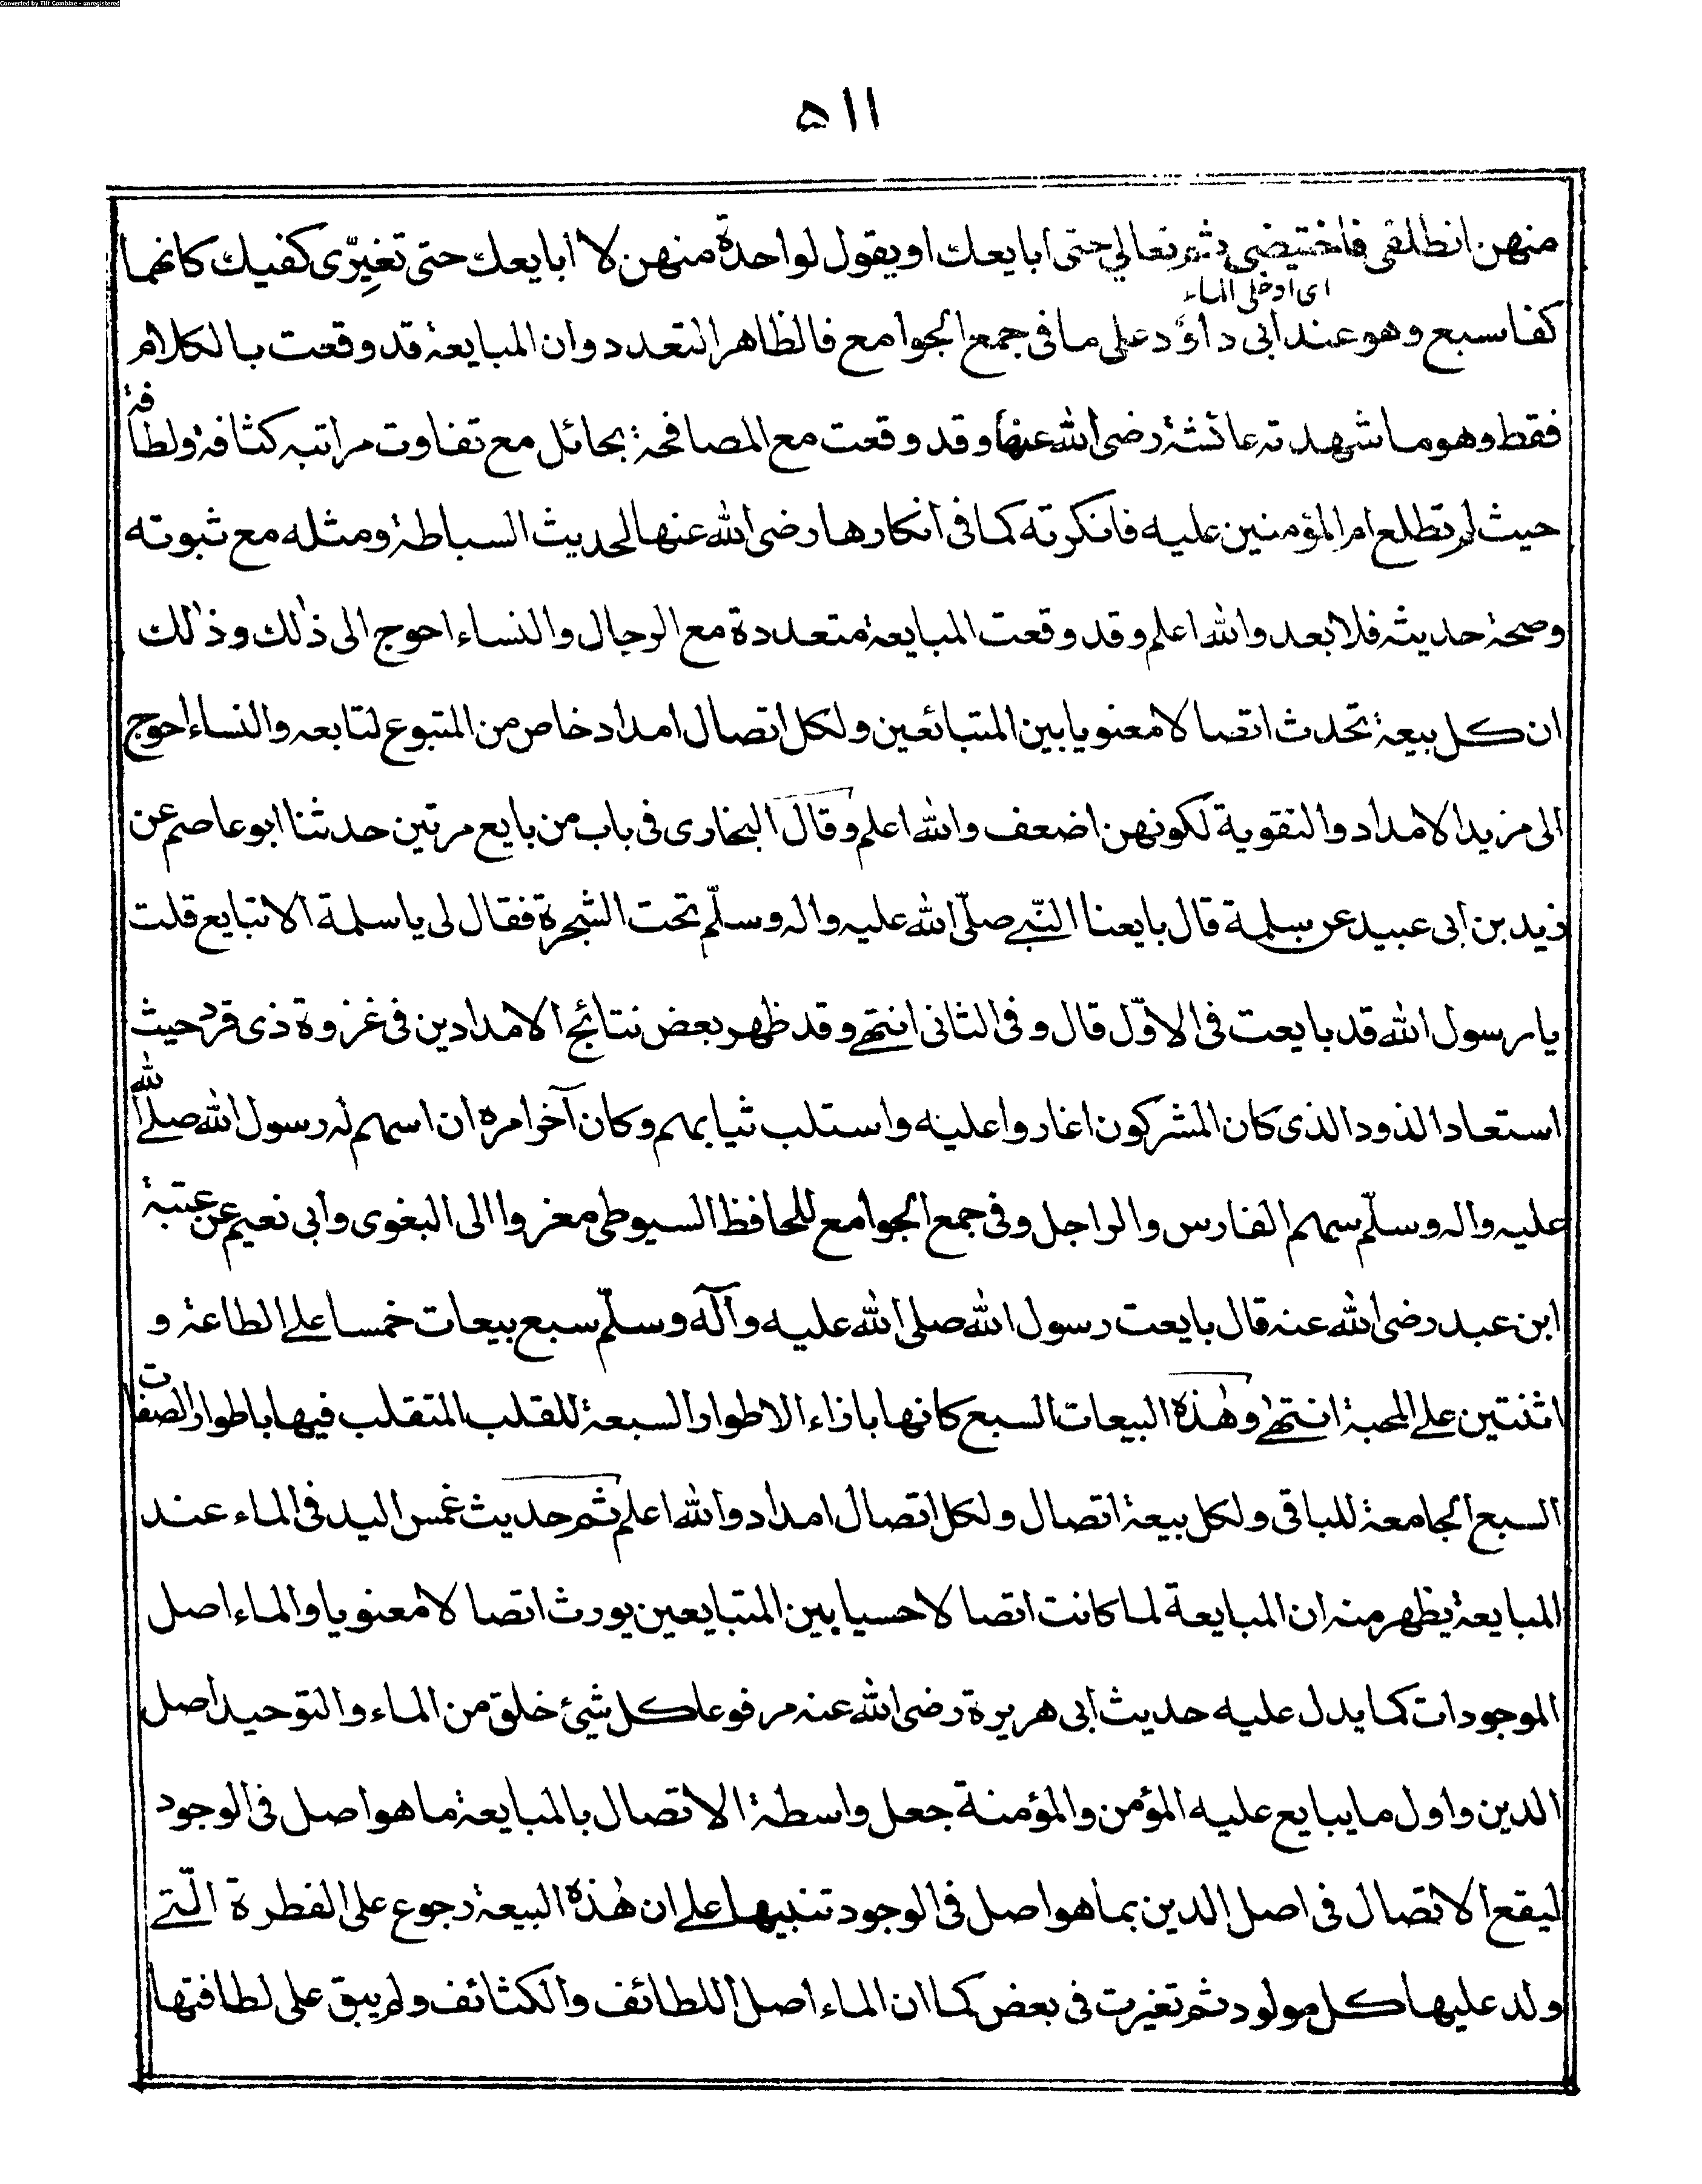 Converted by Tiff Combine - unregistered
۵۱۱
منهن انطلقى فاختيضى ثم تعالي حتى ابايعك او يقول لواحدة منهن لا ابايعك حتى تغيّرى كفيك كانهما
اى ادخلى الماء
كفا سبع وهو عند ابى داؤد على ما فى جمع الجوامع فالظاهر التعدد وان المبايعة قد وقعت بالكلام
فقط وهو ما شهدته عائشة رضى الله عنها وقد وقعت مع المصافحة بحائل مع تفاوت مراتبه كثافة ولطافة
حيث لم تطلع ام المؤمنين عليه فانكرته كما فى انكارها رضى الله عنها لحديث السباطة ومثله مع ثبوته
وصحة حديثه فلا بعد والله اعلم وقد وقعت المبايعة متعددة مع الرجال والنساء احوج الى ذلك وذلك
ان كل بيعة تحدث اتصالا معنويا بين المتبائعين ولكل اتصال امداد خاص من المتبوع لتابعه والنساء احوج
الى مزيد الامداد والتقوية لكونهن اضعف والله اعلم وقال البخارى فى باب من بايع مرتين حدثنا ابو عاصم عن
زيد بن ابى عبيد عن سلمة قال بايعنا النّبے صلّى الله عليه واله وسلّم تحت الشجرة فقال لى يا سلمة الا تبايع قلت
يا رسول الله قد بايعت فى الاوّل قال وفى الثانى انتهے وقد ظهر بعض نتائج الامدادين فى غزوة ذى قرد حيث
استعاد الذود الذى كان المشركون اغاروا عليه واستلب ثيابهم وكان آخر امره ان اسهم له رسول الله صلے الله
عليه واله وسلّم سهم الفارس والراجل وفى جمع الجوامع للحافظ السيوطى معزوا الى البغوى وابى نعيم عن عتبة
ابن عبد رضى الله عنه قال بايعت رسول الله صلى الله عليه وآله وسلّم سبع بيعات خمسا علے الطاعة و
اثنتين علے المحبة انتهے وهذه البيعات السبع كانها بازاء الاطوار السبعة للقلب المتقلب فيها باطوار الصفات
السبع الجامعة للباقى ولكل بيعة اتصال ولكل اتصال امداد والله اعلم ثم حديث غمس اليد فى الماء عند
المبايعة يظهر منه ان المبايعة لما كانت اتصالا حسيا بين المتبايعين يورث اتصالا معنويا والماء اصل
الموجودات كما يدل عليه حديث ابى هريرة رضى الله عنه مرفوعا كل شئ خلق من الماء والتوحيد اصل
الدين واول ما يبايع عليه المؤمن والمؤمنة جعل واسطة الاتصال بالمبايعة ما هو اصل فى الوجود
ليقع الاتصال فى اصل الدين بما هو اصل فى الوجود تنبيها علے ان هذه البيعة رجوع على الفطرة الّتے
ولد عليها كل مولود ثم تغيرت فى بعض كما ان الماء اصل اللطائف والكثائف ولم يبق على لطافتها